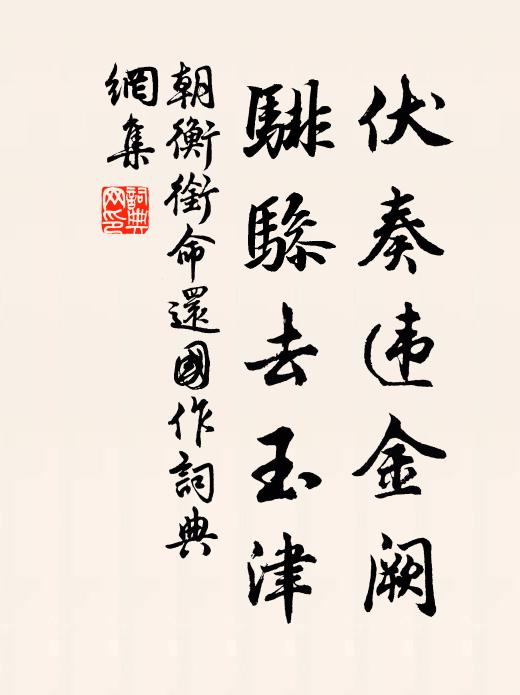 伏奏违金阙
騑骖去玉津
朝衡衔命還國作詞典
網集
詞典网印